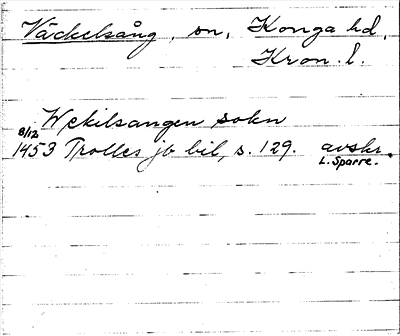 Väckelsång, sn, Konga hd,
Kron. l.
Wekilsangen sokn
8/12
1453 Trolles jb bil, s. 129. avskr.
L. Sparre.